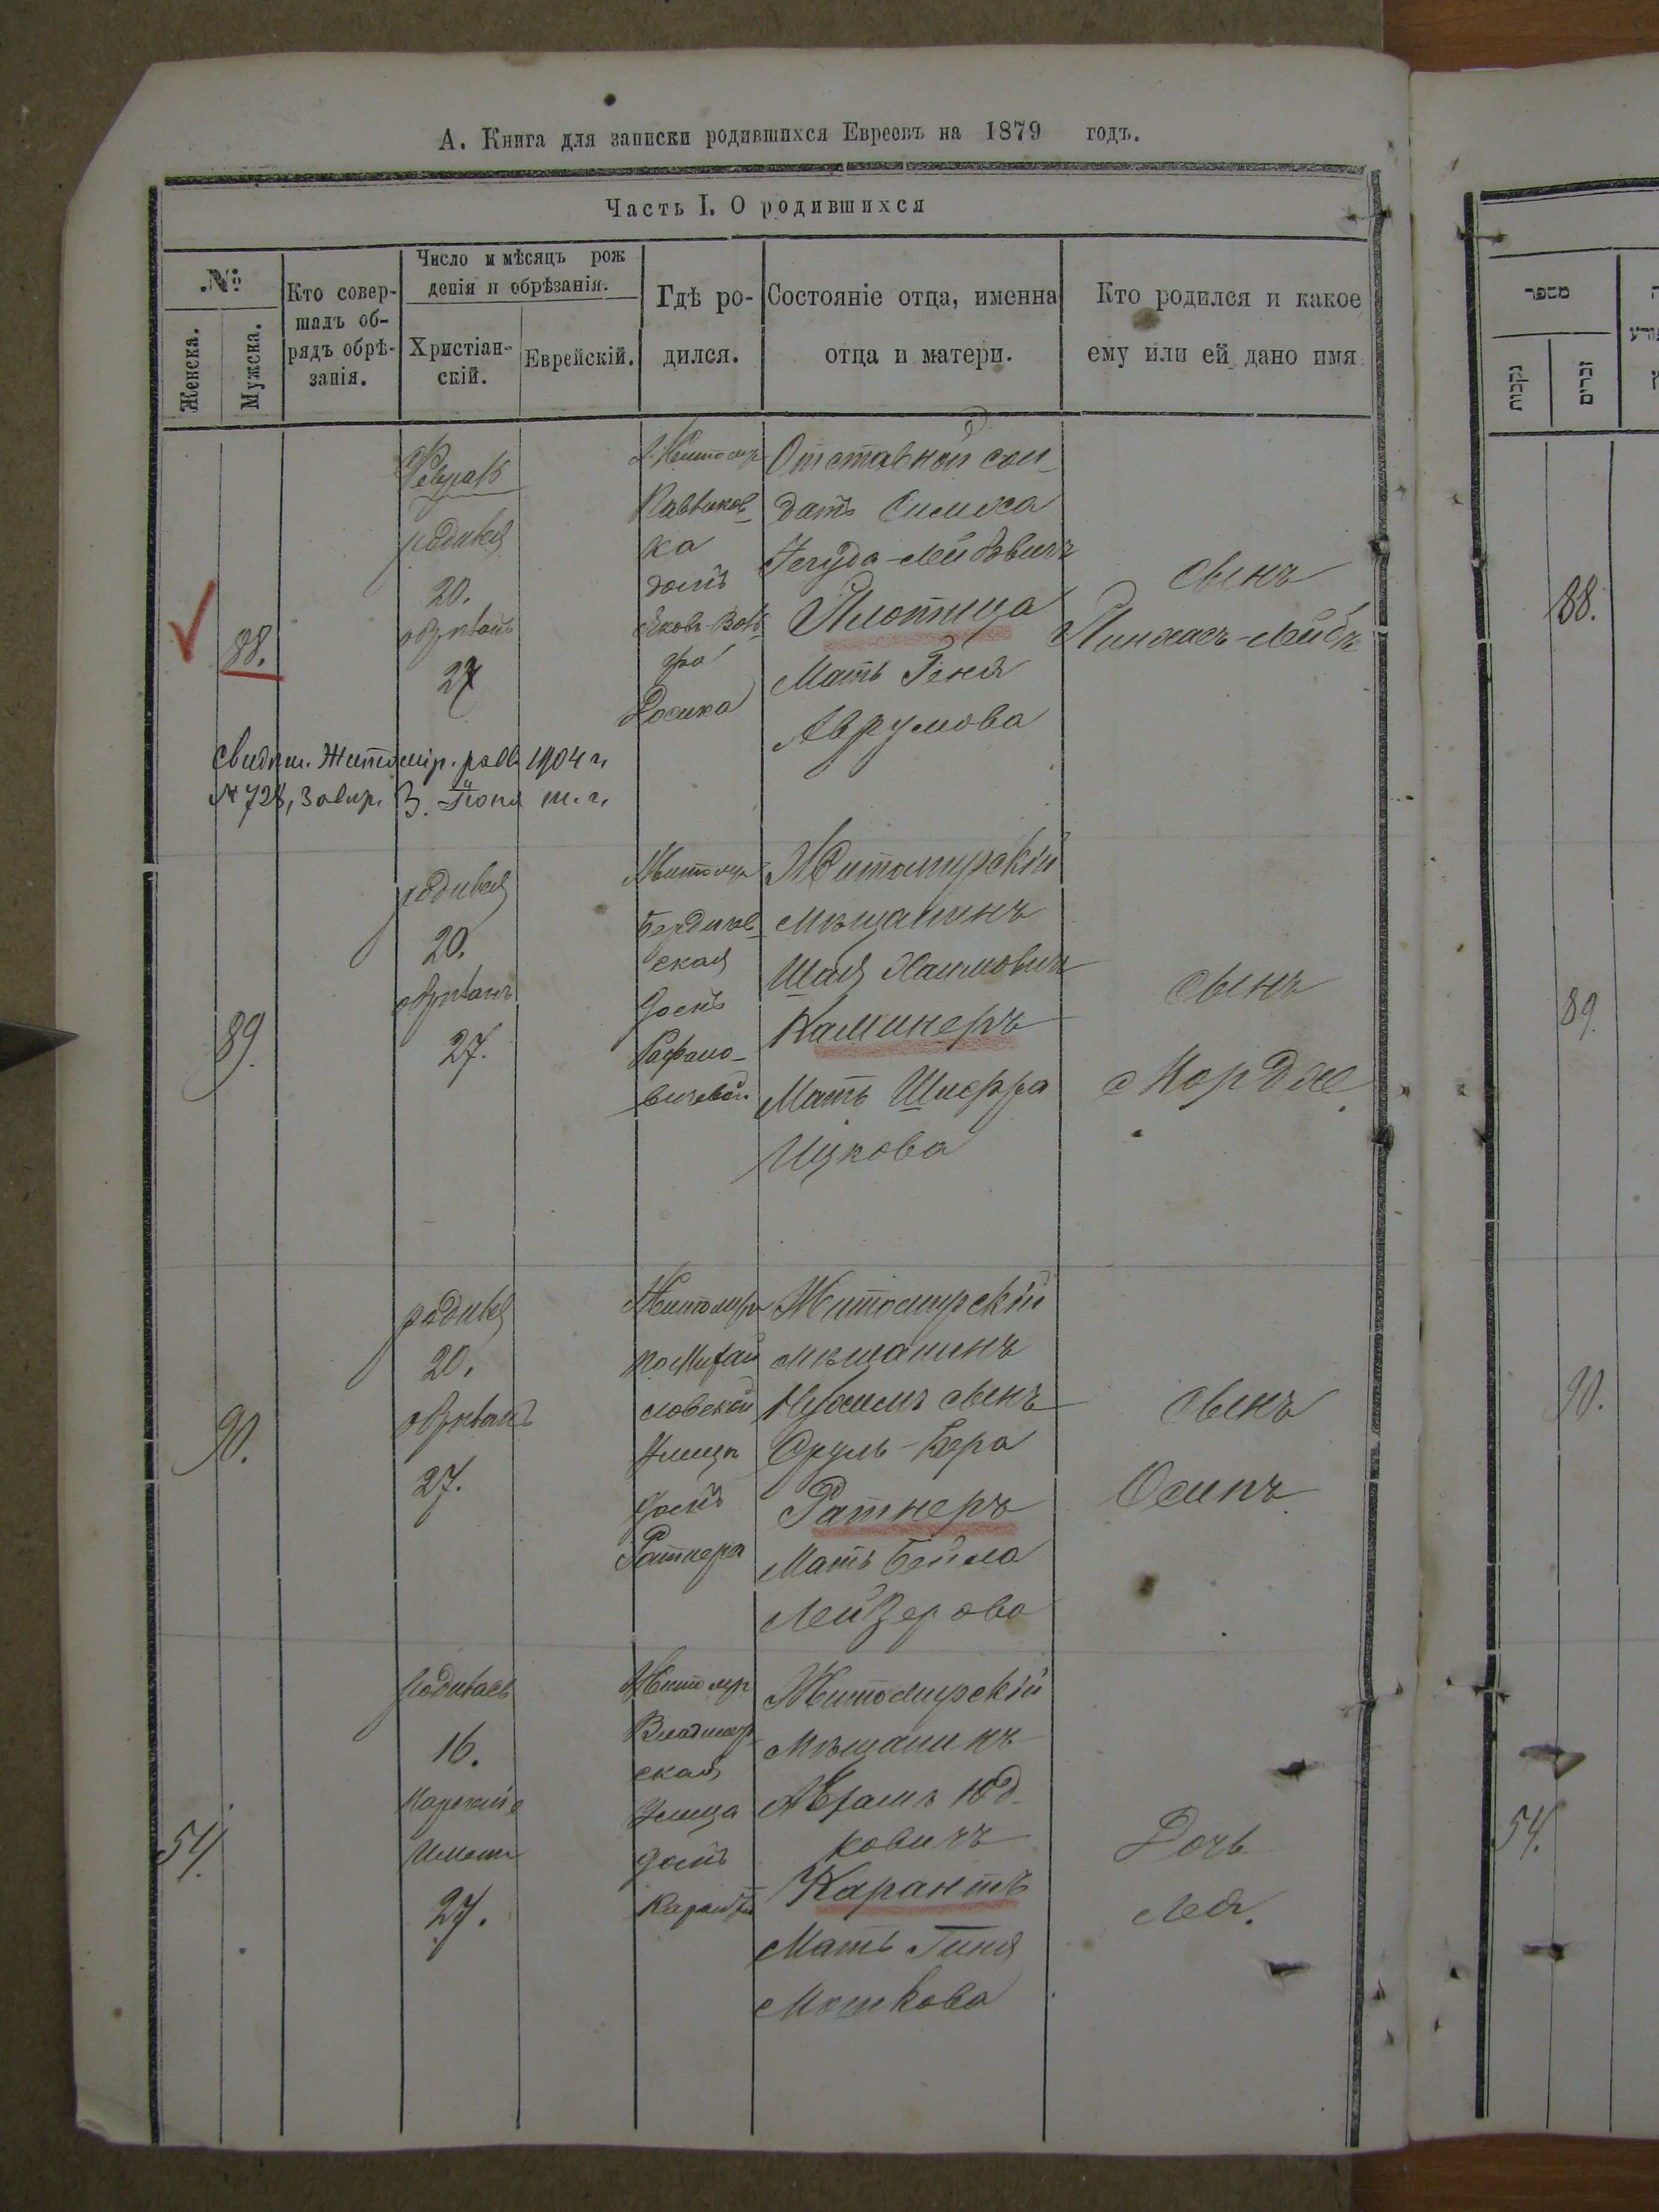 А. Книга для записки родившихся Евреевъ на 1879 годъ.
Часть I. О родившихся
№
Женска.
Мужска.
Кто совер-
шалъ об-
рядъ обрѣ-
занія.
Число и мѣсяцъ рож
денія и обрѣзанія.
Христіан-
скій.
Еврейскій.
Гдѣ ро-
дился.
Состояніе отца, именна
отца и матери.
Кто родился и какое
ему или ей дано имя
88.
родился
20.
обрѣзанъ
27
Житомир
ка
домъ
Отставной сол-
датъ Симха
Іегуда-Лейбовичъ
Плотица
Мать Геня
Аврумова
сынъ
Пинхасъ-Лейбъ
Свидѣт. Житомір. равв. 1904 г.
№ 728, 3 т. г.
89.
родился
20.
обрѣзанъ
27.
Житомир
Бердичев-
ская
домъ
Житомирскій
мѣщанинъ
Шая Хаимовичъ
Каминеръ
Мать
Ицкова
сынъ
Мордхе
90.
родился
20.
обрѣзанъ
27.
Житомиръ
по Михай
ловской
улицѣ
домъ
Ратнера
Житомирскій
мѣщанинъ
сынъ
Сруль-Бера
Ратнеръ
Мать Бейла
Лейзерова
сынъ
Осипъ
54.
родилась
16.
наречено
имени
27.
Житомир
Владимир
ская
улица
домъ
Житомирскій
мѣщанинъ
Абрамъ Юд-
ковичъ
Карантъ
Мать Гиня
Мошкова
Дочь
Лея.
מספר
נקבות
זכרים
88.
89.
90.
54.